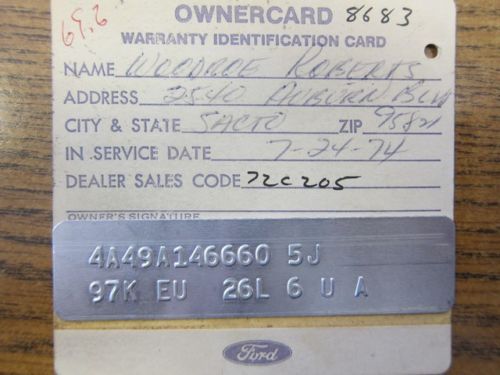 69.6
OWNERCARD 8683
WARRANTY IDENTIFICATION CARD
NAME WOODROE ROBERTS
ADDRESS 2540 AUBURN BLVD
CITY & STATE SACTO ZIP 95821
IN SERVICE DATE 7-24-74
DEALER SALES CODE 72C205
OWNER'S SIGNATURE
4A49A146660 5J
97K EU 26L 6 U A
Ford